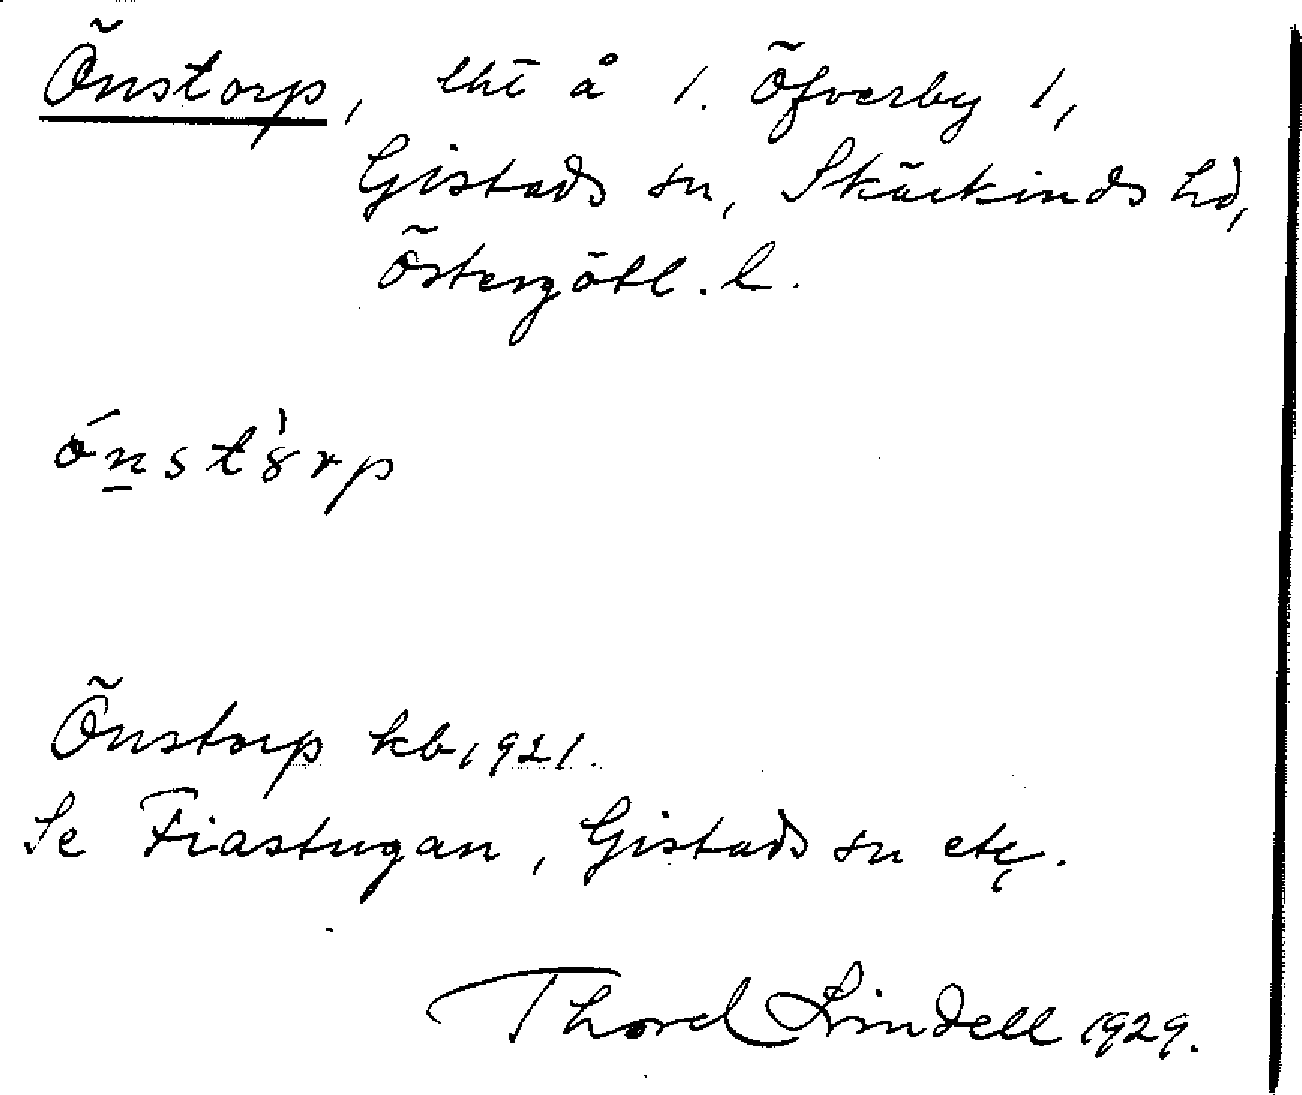 Önstorp, lht å 1. Öfverby 1,
Gistads sn, Skärkinds hd,
Östergötl. l.
Önstorp kb, 1921.
Se Fiastugan, Gistads sn etc.
Thord Lindell 1929.